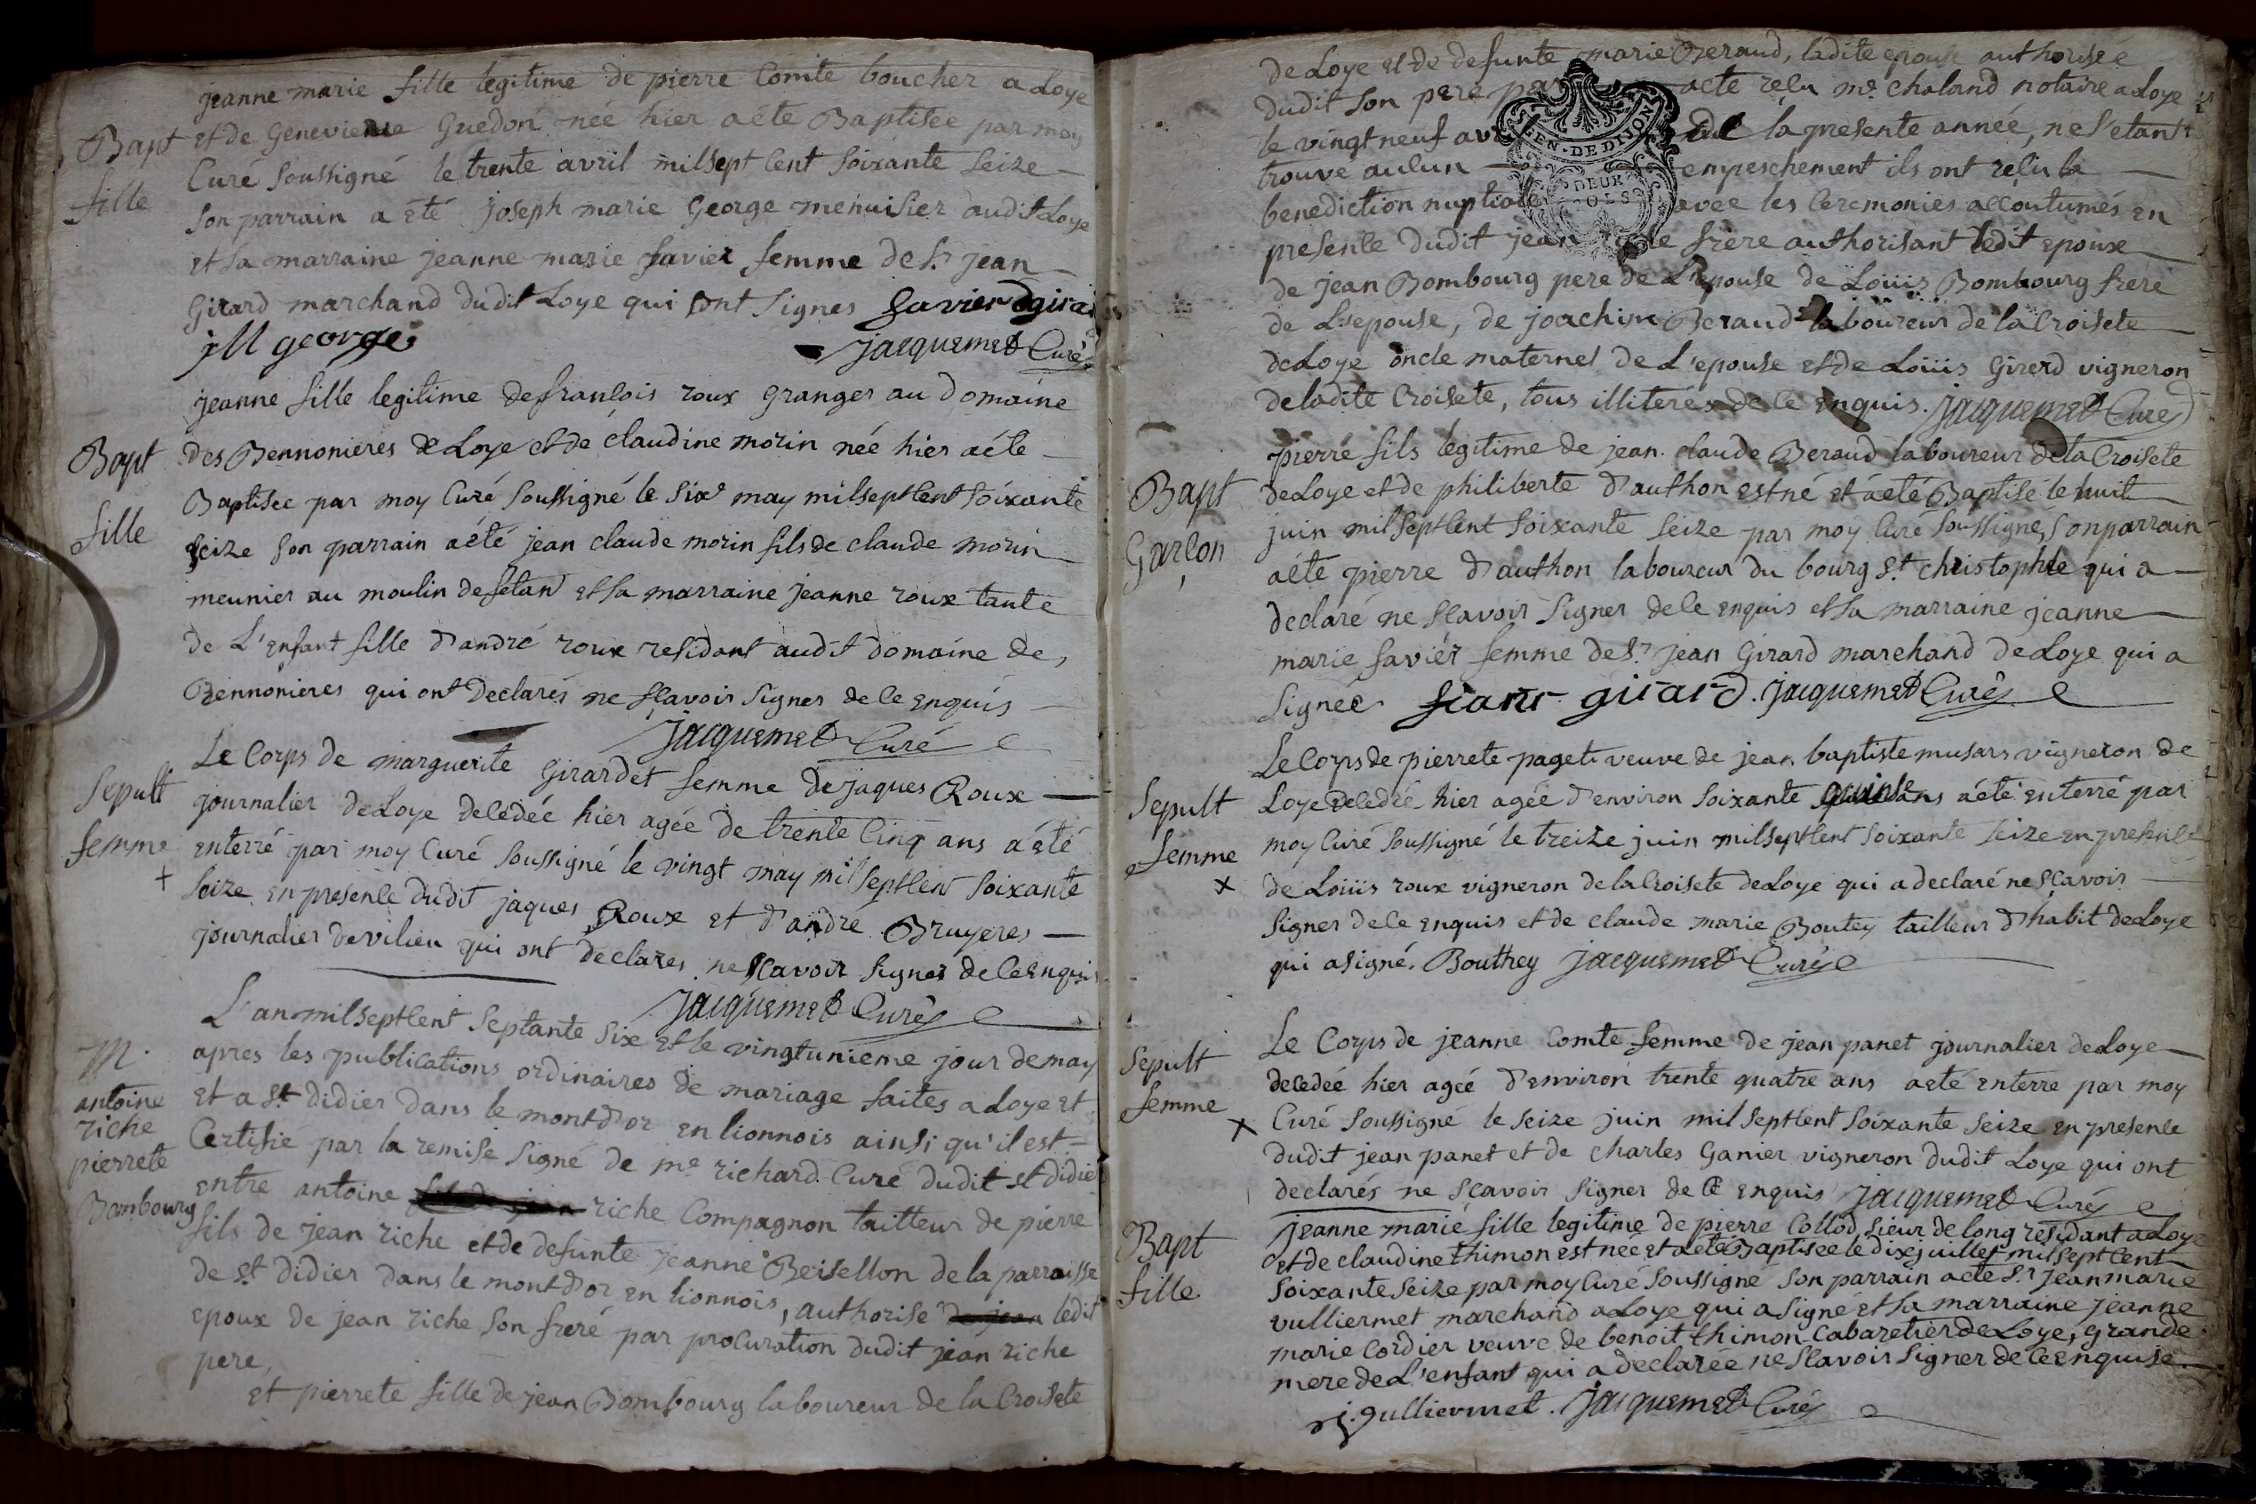 jeanne marie fille legitime de pierre Comte boucher a Loye
Bapt et de Genevieve Guedon née hier a été Baptisée par moy
Curé soussigné le trente avril mil sept cent soixante seize
fille
son parrain a été joseph marie George menuisier audit Loye
et sa marraine jeanne marie favier femme de Sr jean
Girard marchand dudit Loye qui ont signes favier
jM george jacquemet Curé
jeanne fille legitime de françois roux granger au Domaine
Bapt des Bennonieres de Loye et de claudine morin née hier a éte
Baptisée par moy Curé soussigné le six may mil sept cent soixante
fille seize son parrain a été jean claude morin fils de claude morin
meunier au moulin de et sa marraine jeanne roux tante
de L'enfant fille d'andré roux residant audit domaine de
Bennonieres qui ont declarés ne scavoir signer de ce enquis
jacquemet Curé
Le Corps de marguerite Girardet femme de jaques Roux
Sepult journalier de Loye decedée hier agée de trente cinq ans a été
femme enterré par moy Curé soussigné le vingt may mil sept cent soixante
+ seize en presence dudit jaques Roux et d'andré Bruyeres
journalier de vilieu qui ont declarés ne scavoir signer de ce enquis
jacquemet Curé
L'an mil sept cent septante six et le vingtunieme jour de may
M. apres les publications ordinaires de mariage faites a Loye et
antoine et a St didier dans le montd'or en lionnois ainsi qu'il est
riche Certifie par la remise signé de me richard Curé dudit st didier
pierrete entre antoine riche Compagnon tailleur de pierre
Bombourg fils de jean riche et de defunte jeanne Beisellon de la parroisse
de st didier dans le montd'or en lionnois, authorisé ledit
epoux de jean riche son freré par procuration dudit jean riche
pere,
et pierrete fille de jean Bombourg laboureur de la Croisete
de Loye et de defunte marie Beraud, ladite epouse authorisée
dudit son pere acte recu me chaland notaire a Loye
EN. DE DIJON
le vingt neuf de la presente année, ne s'etant
trouve aucun empeschement ils ont recu la
DEUX SOLS
benediction nuptiale avec les Ceremonies accoutumés en
presence dudit jean frère authorisant ledit epoux
de jean Bombourg pere de L'epouse de Loüis Bombourg frere
de L'epouse, de joachim Beraud laboureur de la Croisete
de Loye oncle maternel de L'epouse et de Loüis Girerd vigneron
de ladite Croisete, tous illiterés de ce enquis. jacquemet Curé
pierré fils legitime de jean claude Beraud laboureur de la Croisete
Bapt de Loye et de philiberte d'authon est né et a eté Baptisé le huit
juin mil sept cent soixante seize par moy Curé soussigné, son parrain
Garçon a été pierre d'authon laboureur du bourg St christophle qui a
declaré ne scavoir signer de ce enquis et sa marraine jeanne
marie favier femme de Sr jean Girard marchand de Loye qui a
signée girard. jacquemet Curé
Le Corps de pierrete paget veuve de jean baptiste musars vigneron de
Sepult Loye decedée hier agée d'environ soixante quinze ans a été enterré par
femme moy Curé soussigné le treize juin mil sept cent soixante seize en presence
x de Loüis roux vigneron de la Croisete de Loye qui a declaré ne scavoir
signer de ce enquis et de claude marie Boutey tailleur d'habit de Loye
qui a signé. Bouthey jacquemet Curé
Le Corps de jeanne Comte femme de jean panet journalier de Loye
Sepult decedeé hier agée d'environ trente quatre ans a eté enterre par moy
femme
x Curé soussigné le seize juin mil sept cent soixante seize en presence
dudit jean panet et de charles Ganier vigneron dudit Loye qui ont
declarés ne scavoir signer de ce enquis jacquemet Curé
jeanne marié fille legitime de pierre Collod, sieur de long residant a Loye
Bapt et de claudine thimon est née et a été Baptisée le dix juillet mil sept cent
fille soixante seize par moy Curé soussigne son parrain a été Sr jean marie
vulliermet marchand a Loye qui a signé et sa marraine jeanne
marie Cordier veuve de benoit thimon Cabaretier de Loye, grande
mere de L'enfant qui a declarée ne scavoir signer de ce enquise.
j. vulliermet. jacquemet Curé